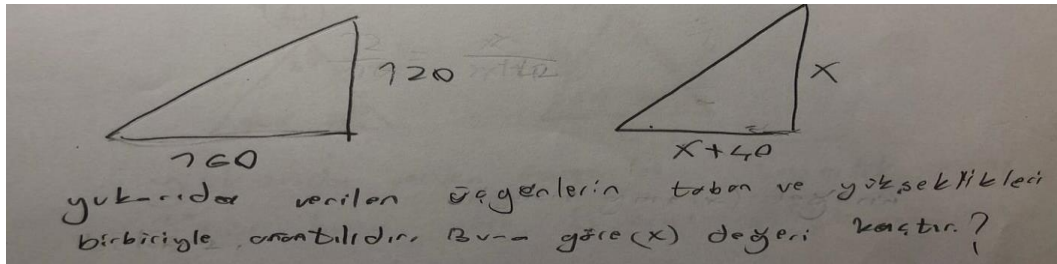 120
x
160
x+40
yukarıda verilen üçgenlerin taban ve yükseklikleri
birbiriyle orantılıdır. Buna göre (x) değeri kaçtır?